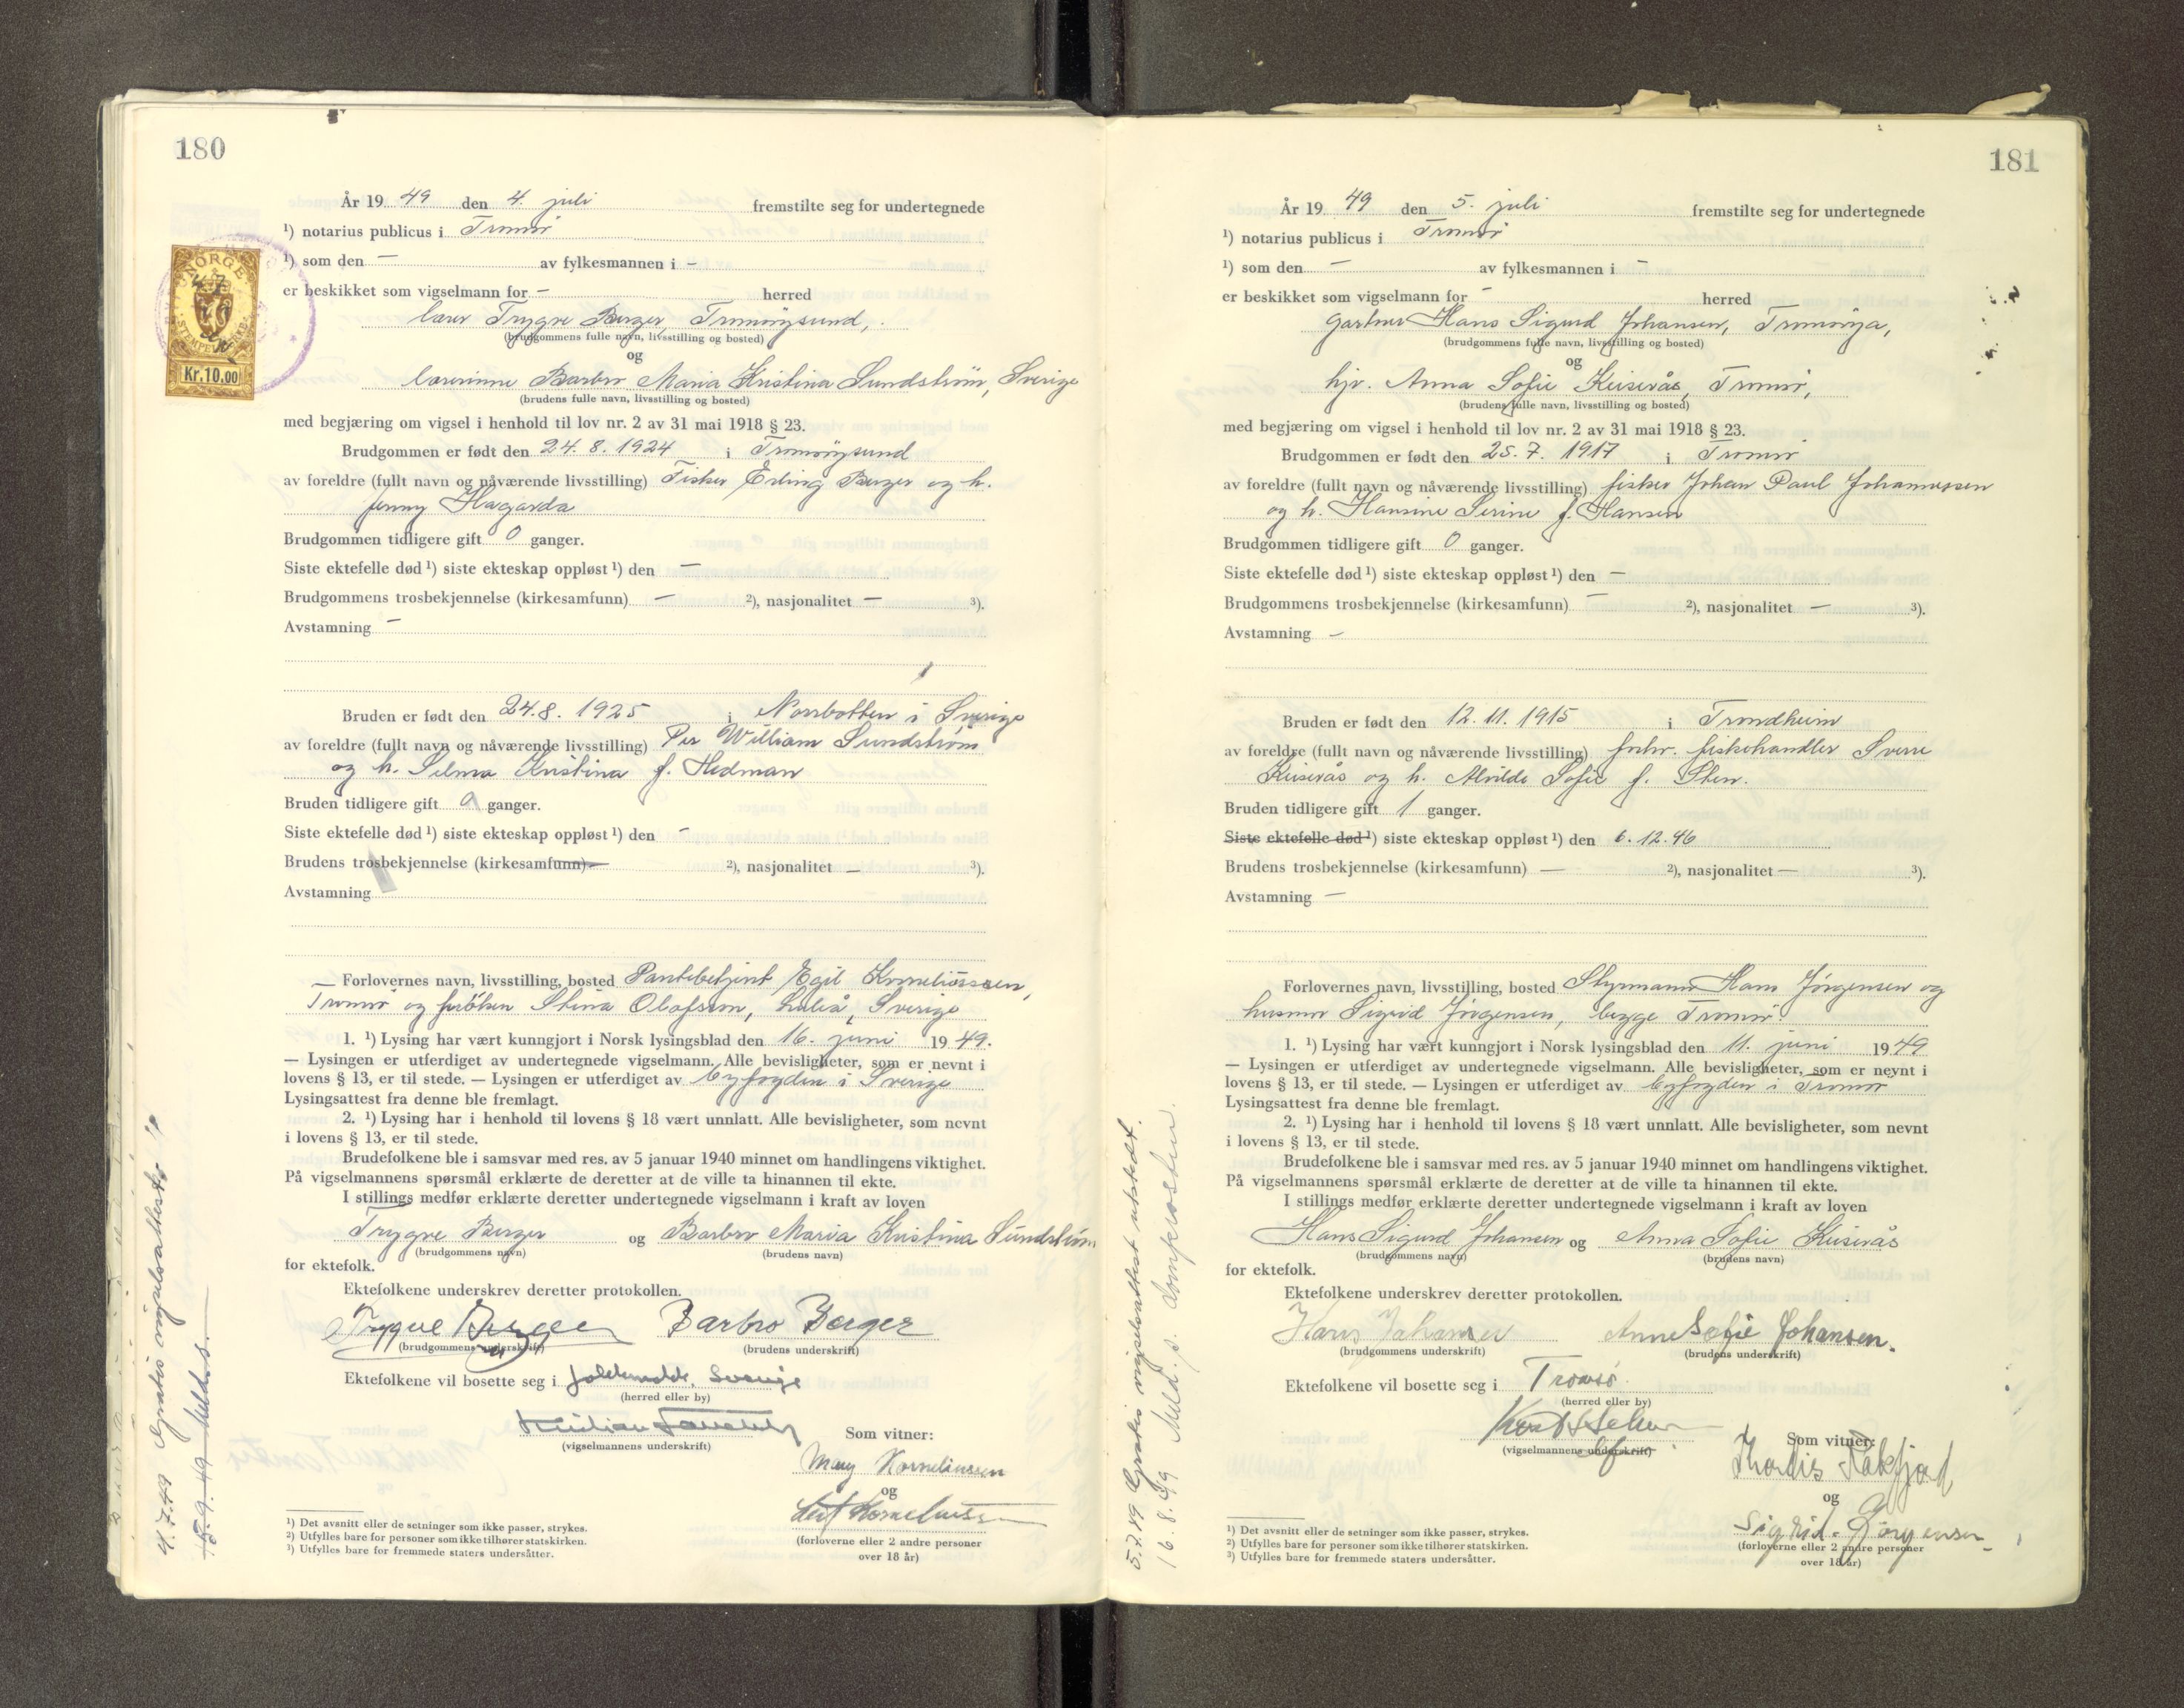 180
År 1949 den 4. juli fremstilte seg for undertegnede
¹) notarius publicus i Tromsø
¹) som den — av fylkesmannen i —
er beskikket som vigselmann for — herred
lærer Trygve Berger, Tromsøysund,
(brudgommens fulle navn, livsstilling og bosted)
og
lærerinne Barbro Maria Kristina Sundström, Sverige
(brudens fulle navn, livsstilling og bosted)
med begjæring om vigsel i henhold til lov nr. 2 av 31 mai 1918 § 23.
Brudgommen er født den 24.8.1924 i Tromsøysund
av foreldre (fullt navn og nåværende livsstilling) Fisker Erling Berger og h.
Jenny Hagarda
Brudgommen tidligere gift 0 ganger.
Siste ektefelle død ¹) siste ekteskap oppløst ¹) den —
Brudgommens trosbekjennelse (kirkesamfunn) — ²), nasjonalitet — ³).
Avstamning —
Bruden er født den 24.8.1925 i Norrbotten i Sverige
av foreldre (fullt navn og nåværende livsstilling) Per William Sundström
og h. Selma Kristina f. Hedman
Bruden tidligere gift 0 ganger.
Siste ektefelle død ¹) siste ekteskap oppløst ¹) den —
Brudens trosbekjennelse (kirkesamfunn) — ²), nasjonalitet — ³).
Avstamning
Forlovernes navn, livsstilling, bosted Pantebetjent Egil Korneliussen,
Tromsø og frøken Stina Olofsson, Luleå, Sverige
1. ¹) Lysing har vært kunngjort i Norsk lysingsblad den 16. juni 1949.
— Lysingen er utferdiget av undertegnede vigselmann. Alle bevisligheter, som er nevnt i
lovens § 13, er til stede. — Lysingen er utferdiget av byfogden i Sverige
Lysingsattest fra denne ble fremlagt.
2. ¹) Lysing har i henhold til lovens § 18 vært unnlatt. Alle bevisligheter, som nevnt
i lovens § 13, er til stede.
Brudefolkene ble i samsvar med res. av 5 januar 1940 minnet om handlingens viktighet.
På vigselmannens spørsmål erklærte de deretter at de ville ta hinannen til ekte.
I stillings medfør erklærte deretter undertegnede vigselmann i kraft av loven
Trygve Berger og Barbro Maria Kristina Sundström
(brudgommens navn) (brudens navn)
for ektefolk.
Ektefolkene underskrev deretter protokollen.
Trygve Berger Barbro Berger
(brudgommens underskrift) (brudens underskrift)
Ektefolkene vil bosette seg i Sverige
(herred eller by)
(vigselmannens underskrift)
Som vitner:
Mary Korneliussen
og
Leif Korneliussen
(forloverne eller 2 andre personer
over 18 år)
¹) Det avsnitt eller de setninger som ikke passer, strykes.
²) Utfylles bare for personer som ikke tilhører statskirken.
³) Utfylles bare for fremmede staters undersåtter.
4.7.49 Gratis vigselsattest
15.9.49 Meld. s.
NORGE
STEMPELMERKE
Kr.10.00
181
År 1949 den 5. juli fremstilte seg for undertegnede
¹) notarius publicus i Tromsø
¹) som den — av fylkesmannen i —
er beskikket som vigselmann for — herred
gartner Hans Sigurd Johansen, Tromsøya,
(brudgommens fulle navn, livsstilling og bosted)
og
hjv. Anna Sofie Keiserås, Tromsø,
(brudens fulle navn, livsstilling og bosted)
med begjæring om vigsel i henhold til lov nr. 2 av 31 mai 1918 § 23.
Brudgommen er født den 25.7.1917 i Tromsø
av foreldre (fullt navn og nåværende livsstilling) fisker Johan Paul Johannessen
og h. Hansine Serine f. Hansen
Brudgommen tidligere gift 0 ganger.
Siste ektefelle død ¹) siste ekteskap oppløst ¹) den —
Brudgommens trosbekjennelse (kirkesamfunn) — ²), nasjonalitet — ³).
Avstamning —
Bruden er født den 12.11.1915 i Trondheim
av foreldre (fullt navn og nåværende livsstilling) forhv. fiskehandler Sverre
Keiserås og h. Alvilde Sofie f. Sten.
Bruden tidligere gift 1 ganger.
Siste ektefelle død ¹) siste ekteskap oppløst ¹) den 6.12.46
Brudens trosbekjennelse (kirkesamfunn) — ²), nasjonalitet — ³).
Avstamning —
Forlovernes navn, livsstilling, bosted Styrmann Hans Jörgensen og
husmor Sigrid Jörgensen, begge Tromsø.
1. ¹) Lysing har vært kunngjort i Norsk lysingsblad den 11. juni 1949
— Lysingen er utferdiget av undertegnede vigselmann. Alle bevisligheter, som er nevnt i
lovens § 13, er til stede. — Lysingen er utferdiget av byfogden i Tromsø
Lysingsattest fra denne ble fremlagt.
2. ¹) Lysing har i henhold til lovens § 18 vært unnlatt. Alle bevisligheter, som nevnt
i lovens § 13, er til stede.
Brudefolkene ble i samsvar med res. av 5 januar 1940 minnet om handlingens viktighet.
På vigselmannens spørsmål erklærte de deretter at de ville ta hinannen til ekte.
I stillings medfør erklærte deretter undertegnede vigselmann i kraft av loven
Hans Sigurd Johansen og Anna Sofie Keiserås
(brudgommens navn) (brudens navn)
for ektefolk.
Ektefolkene underskrev deretter protokollen.
Hans Johansen Anne Sofie Johansen.
(brudgommens underskrift) (brudens underskrift)
Ektefolkene vil bosette seg i Tromsø.
(herred eller by)
(vigselmannens underskrift)
Som vitner:
Thordis
og
Sigrid Jörgensen
(forloverne eller 2 andre personer
over 18 år)
¹) Det avsnitt eller de setninger som ikke passer, strykes.
²) Utfylles bare for personer som ikke tilhører statskirken.
³) Utfylles bare for fremmede staters undersåtter.
5.7.49 Gratis vigselsattest utstedt.
16.8.49 Meld. s. domprosten.